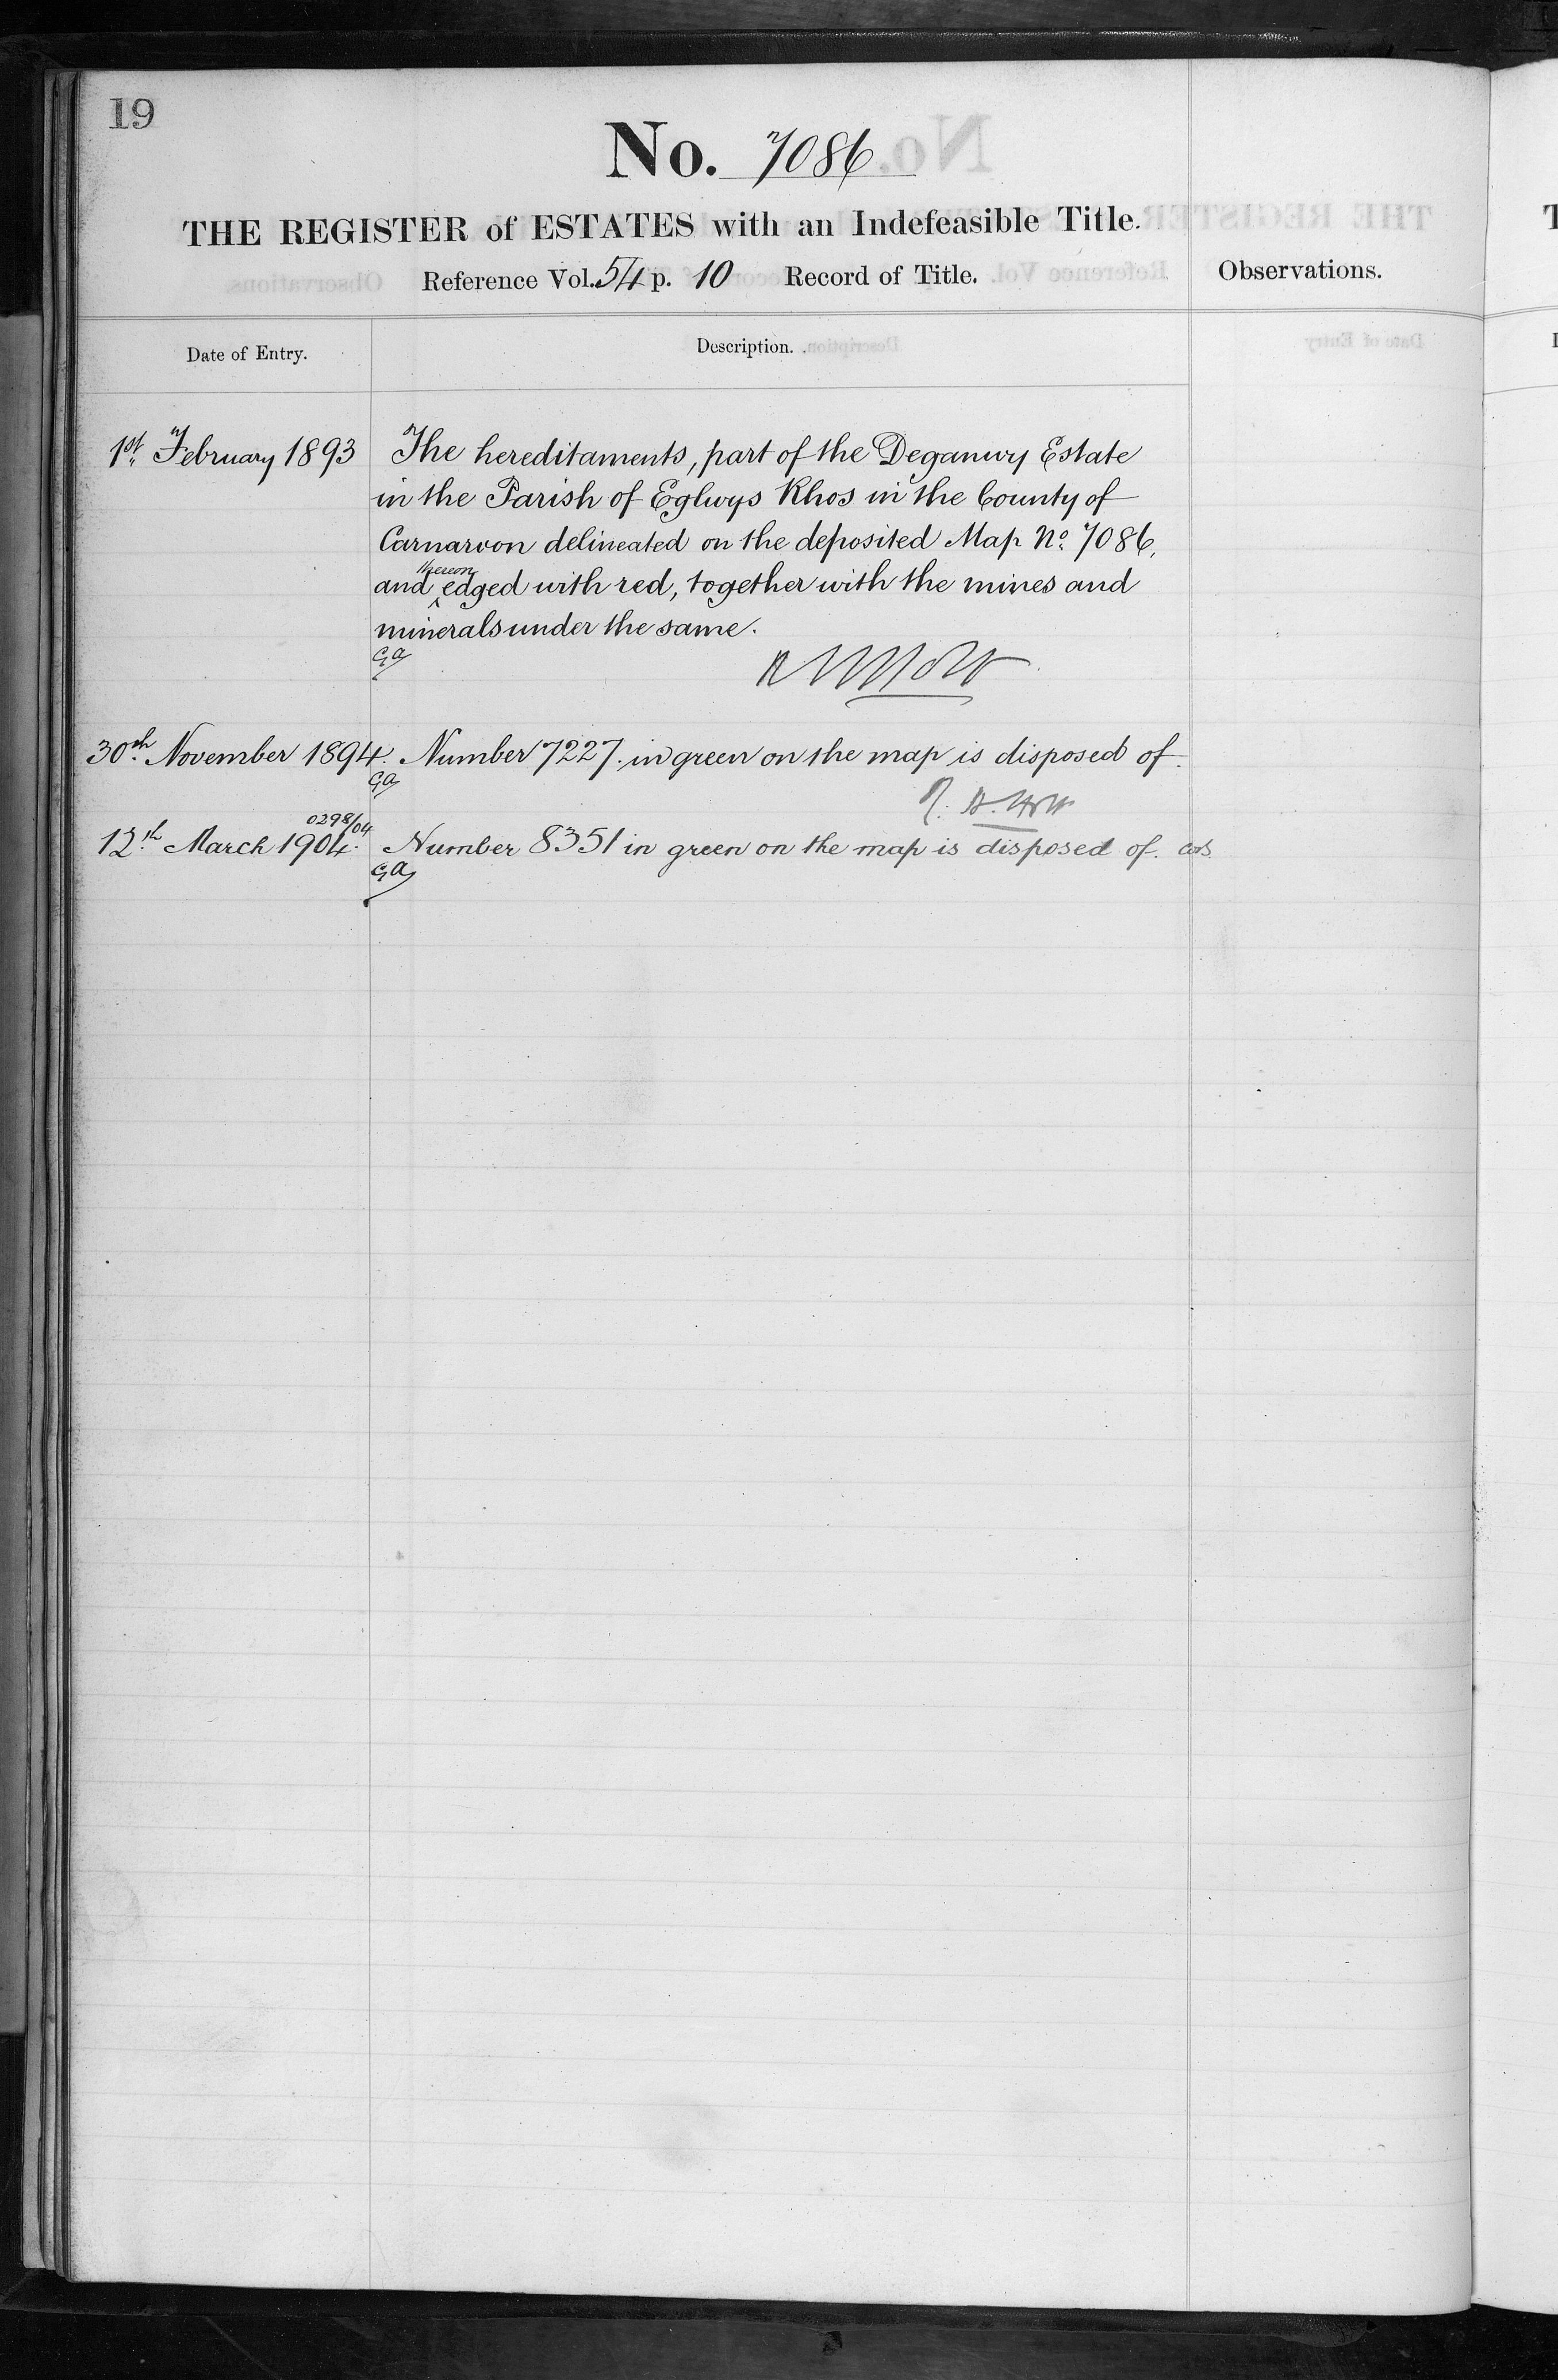 19
No. 7086
THE REGISTER of ESTATES with an Indefeasible Title.
Reference Vol. 54 p. 10 Record of Title.
Observations.
Date of Entry.
Description.
1st February 1893 The hereditaments, part of the Deganwy Estate
in the Parish of Eglwys Rhos in the County of
Carnarvon delineated on the deposited Map No. 7086,
and ^thereon edged with red, together with the mines and
minerals under the same.
GA
30th November 1894. Number 7227. in green on the map is disposed of.
GA
0298/04
12th March 1904. Number 8351 in green on the map is disposed of.
GA